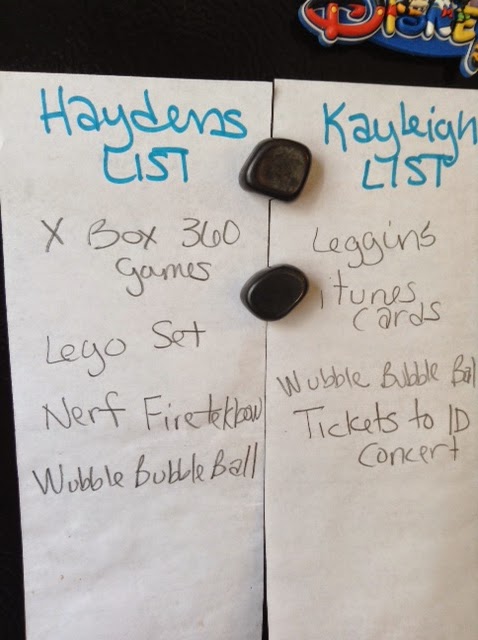 Disney
Haydens
LIST
X Box 360
Games
Lego Set
Nerf Firetekbow
Wubble Bubble Ball
Kayleigh
LIST
Leggins
itunes
Cards
Wubble Bubble Ball
Tickets to 1D
Concert